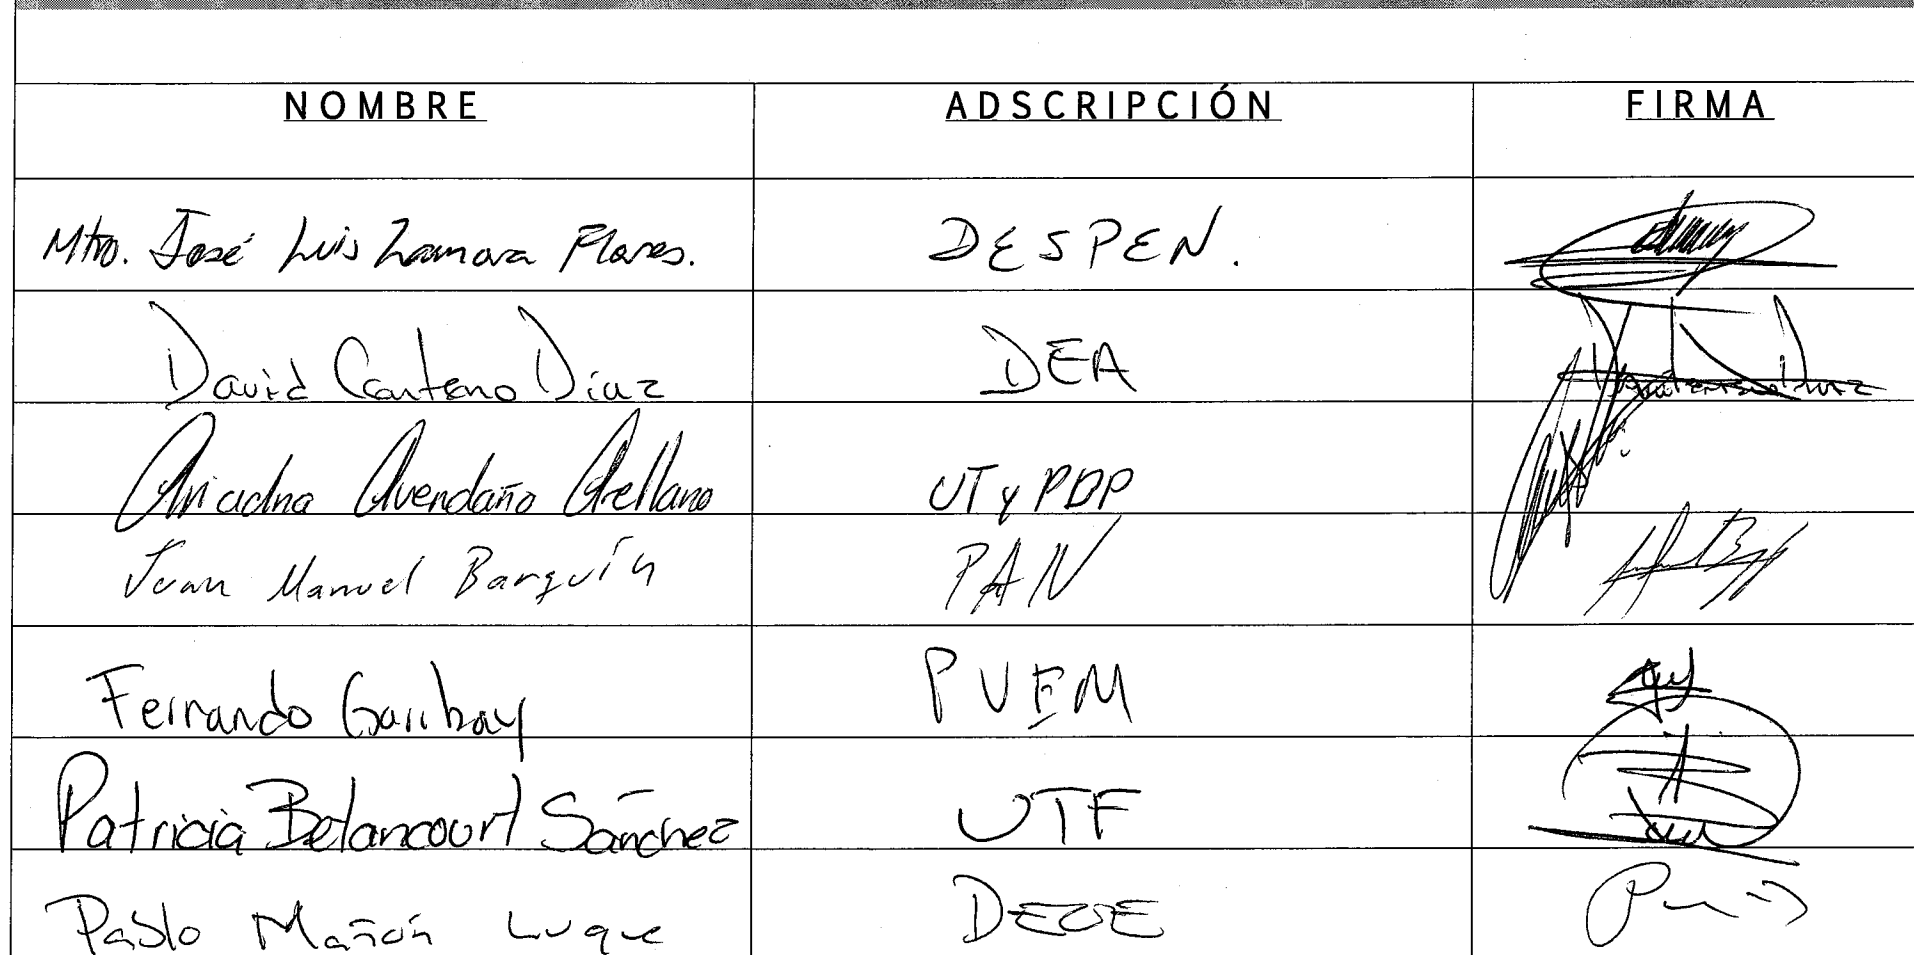 NOMBRE ADSCRIPCIÓN FIRMA
Mtro. José Luis Zamora Flores. DESPEN.
David Canteno Díaz DEA
Ariadna Avendaño Arellano UTyPDP
Juan Manuel Barquín PAN
Fernando Garibay PVEM
Patricia Betancourt Sánchez UTF
Pablo Mañón Luque